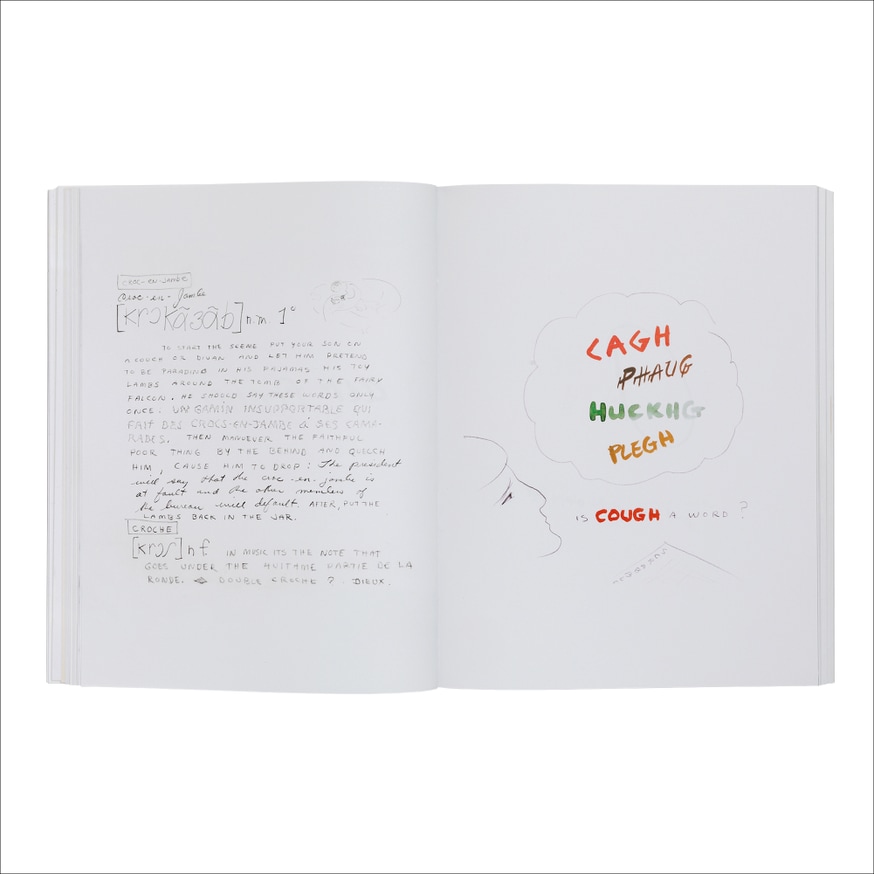 CROC-EN-JAMBE
Croc-en-Jambe
[krɔkɑ̃ʒɑ̃b] n.m. 1°
TO START THE SCENE PUT YOUR SON ON
A COUCH OR DIVAN AND LET HIM PRETEND
TO BE PARADING IN HIS PAJAMAS HIS TOY
LAMBS AROUND THE TOMB OF THE FAIRY
FALCON. HE SHOULD SAY THESE WORDS ONLY
ONCE. UN GAMIN INSUPPORTABLE QUI
FAIT DES CROCS-EN-JAMBE À SES CAMA-
RADES. THEN MANUEVER THE FAITHFUL
POOR THING BY THE BEHIND AND
HIM, CAUSE HIM TO DROP: The president
will say that the croc-en-jambe is
at fault and the other members of
the bureau will default. AFTER, PUT THE
LAMBS BACK IN THE JAR.
CROCHE
[krɔʃ] n f. IN MUSIC ITS THE NOTE THAT
GOES UNDER THE HUITIÈME PARTIE DE LA
RONDE. DOUBLE CROCHE? DIEUX.
CAGH
PHAUG
HUCKHG
PLEGH
IS COUGH A WORD?